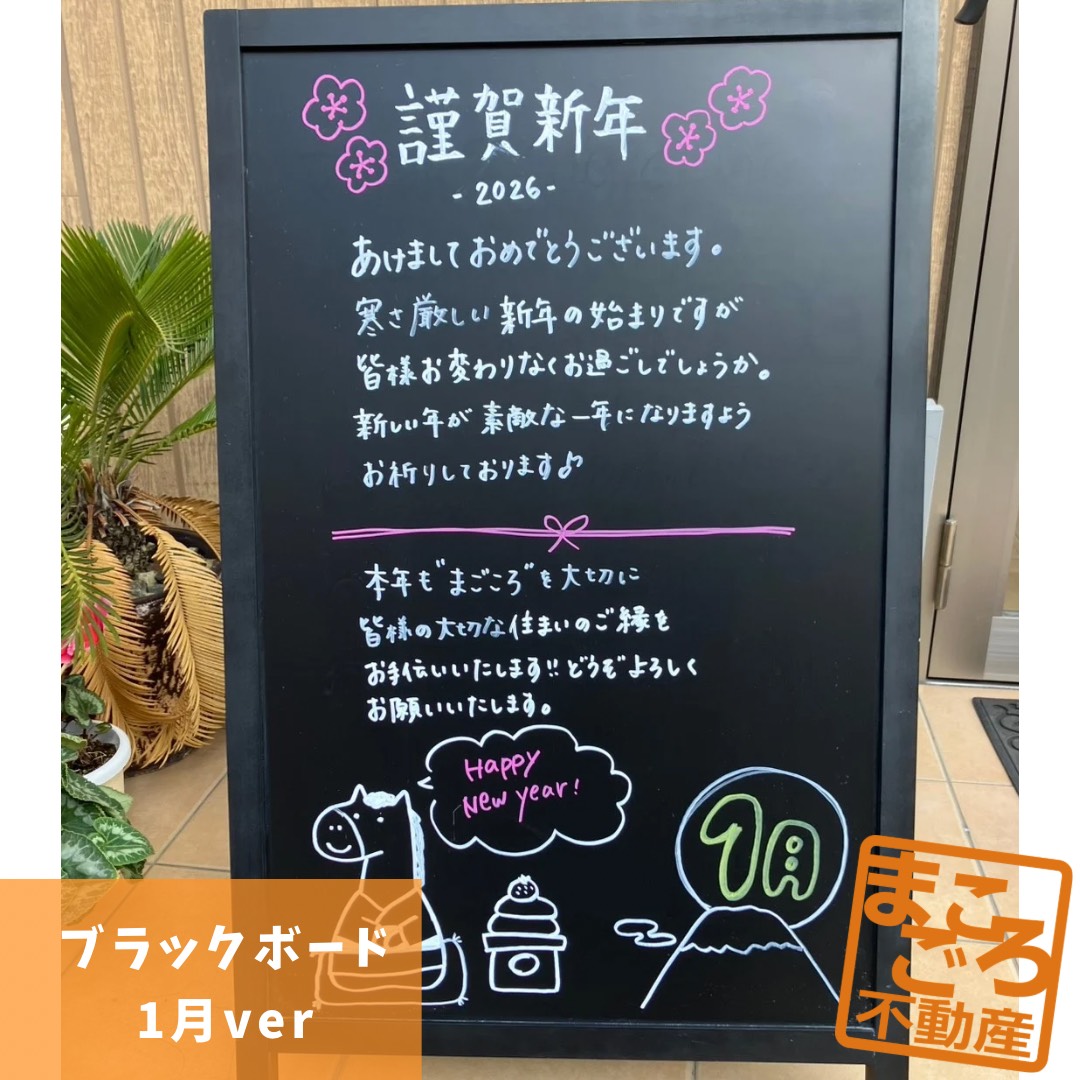 謹賀新年
-2026-
あけましておめでとうございます。
寒さ厳しい新年の始まりですが
皆様お変わりなくお過ごしでしょうか。
新しい年が素敵な一年になりますよう
お祈りしております♪
本年も"まごころ"を大切に
皆様の大切な住まいのご縁を
お手伝いいたします!!どうぞよろしく
お願いいたします。
Happy
New year!
1月
ブラックボード
1月ver
まごころ
不動産